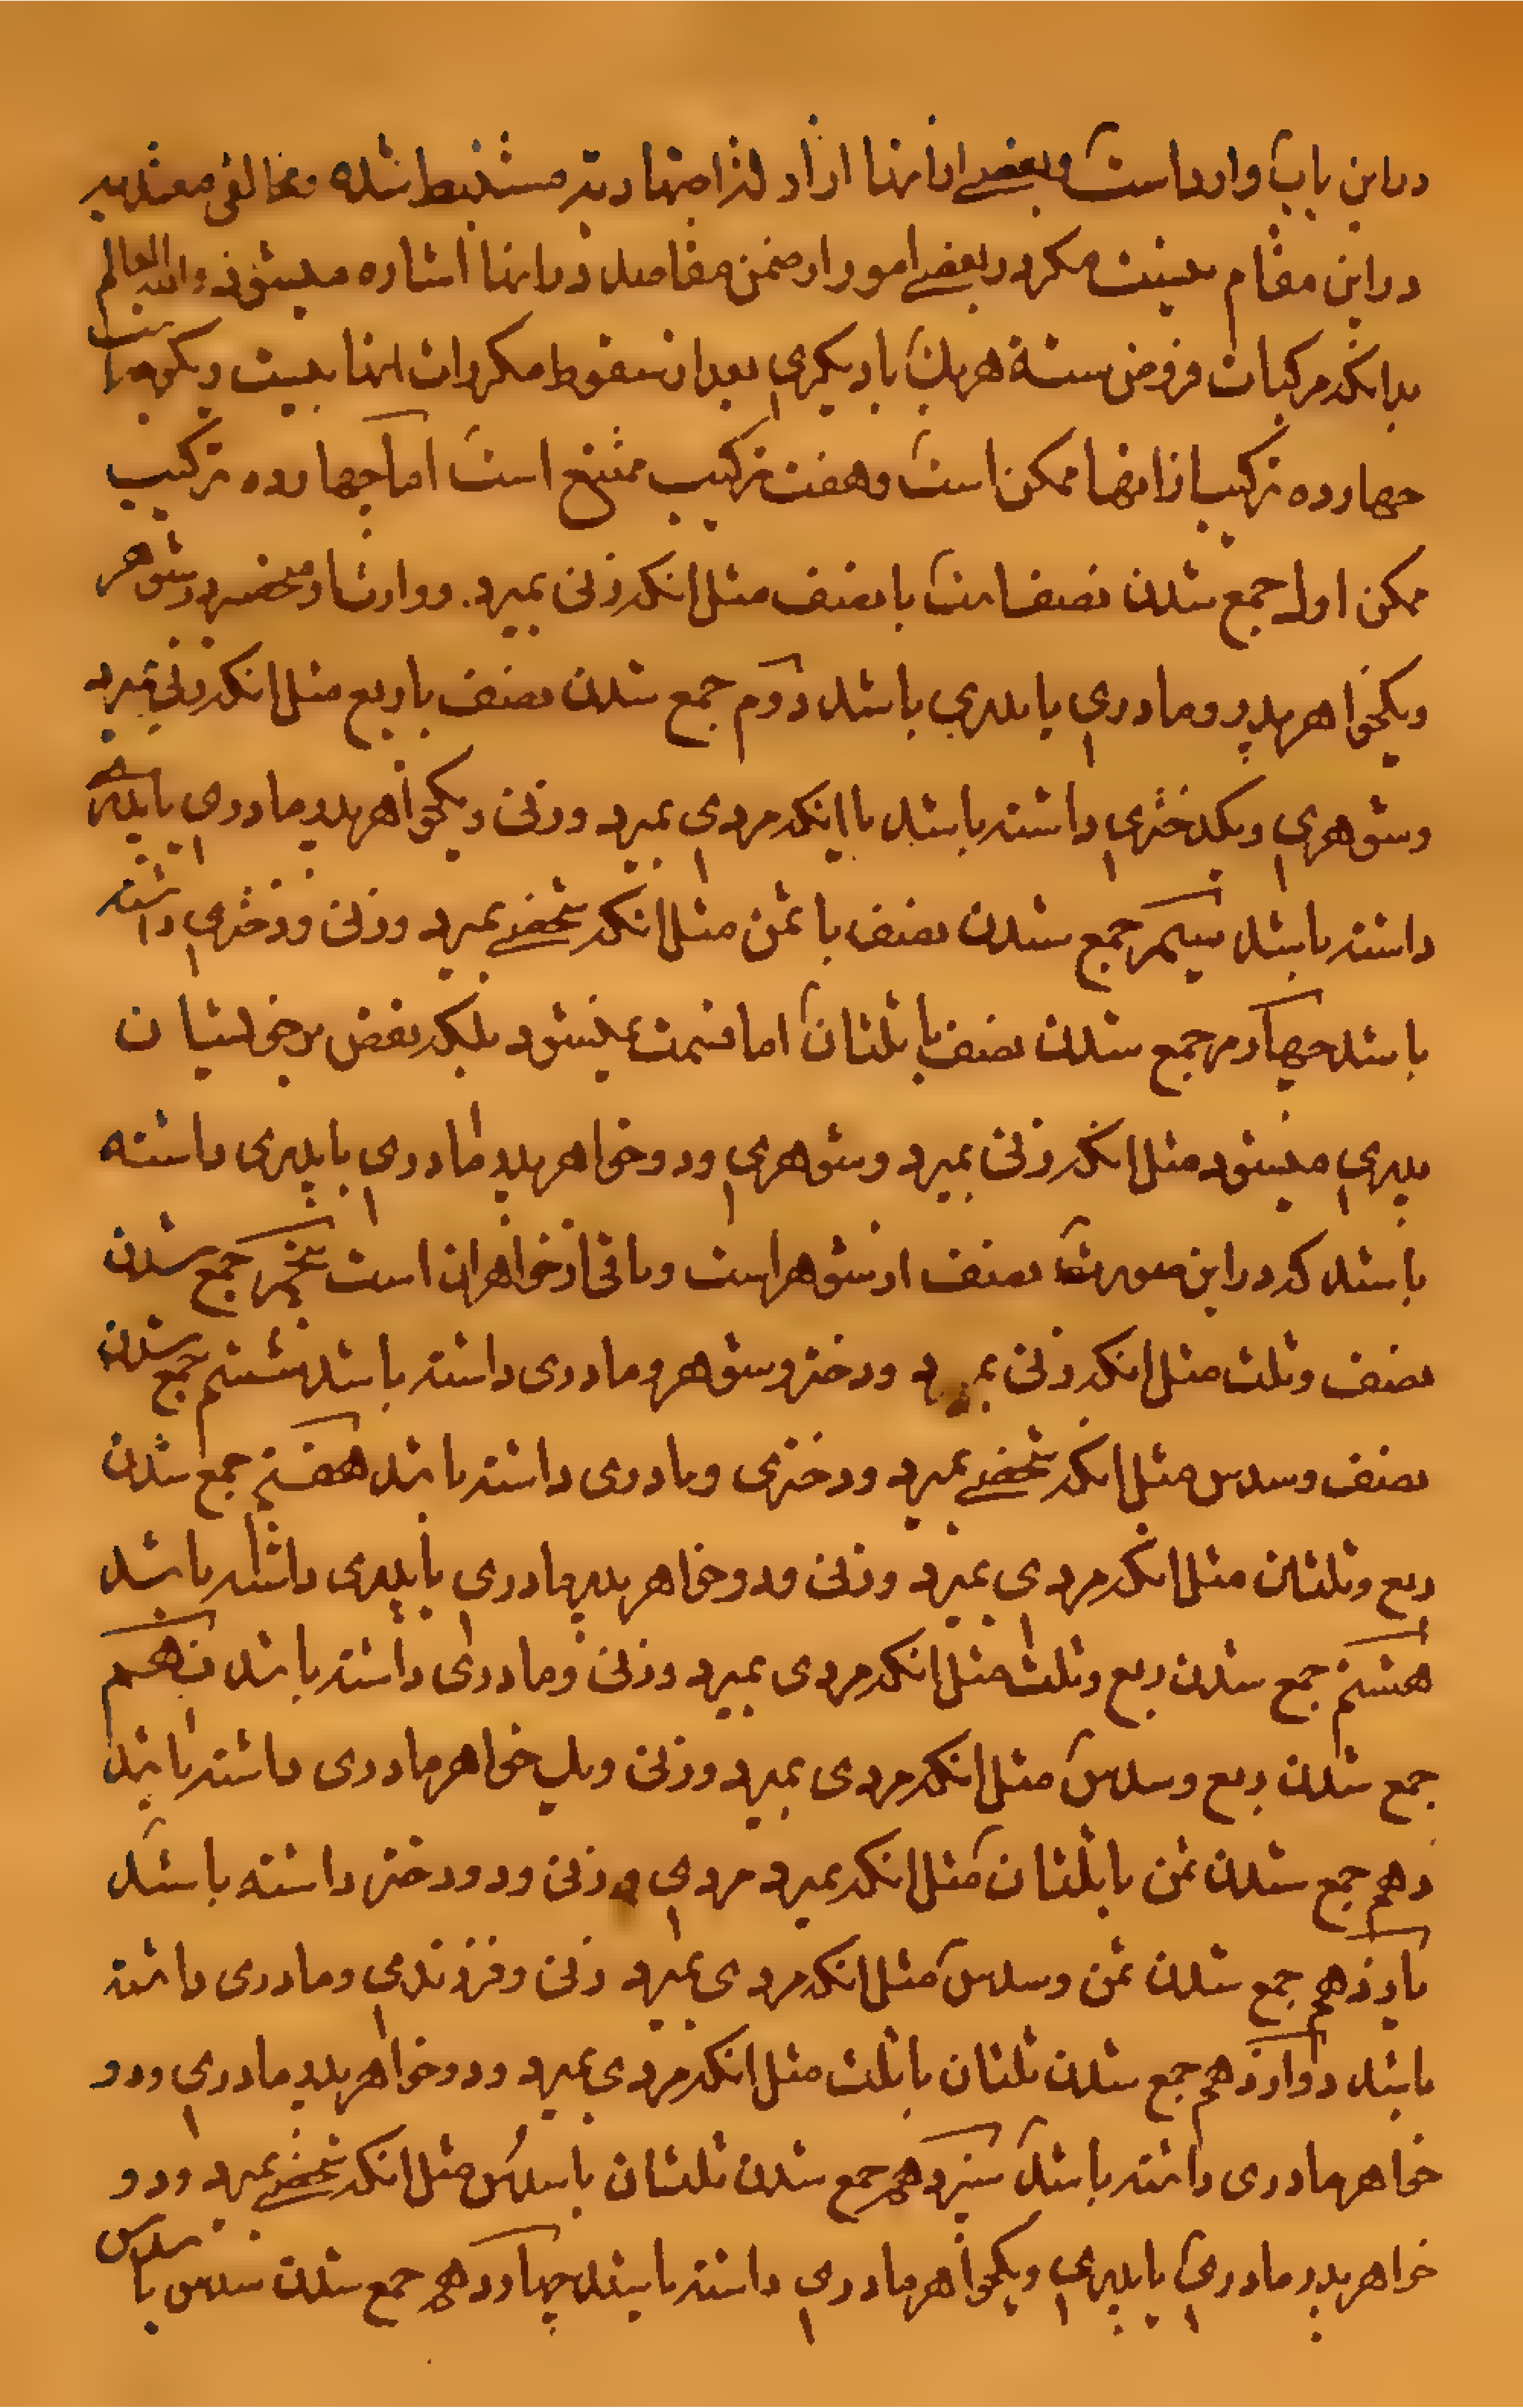 در این باب وارد است و بعضی از اینها از ادله اجتهادیه مستنبط شده و مخالف معتد به
در این مقام نیست مگر در بعضی امور از ضمن مفاصل در اینها اشاره میشود والله العالم
بدانکه مرکبات فروض ستة هر یک با دیگری بعد از سقوط مکررات انها بیست ویکوجه است
چهارده ترکیب از انها ممکن است و هفت ترکیب ممتنع است اما چهارده ترکیب
ممکن اول جمع شدن نصف است با نصف مثل انکه زنی بمیرد و وارث او منحصر در شوهر
ویکخواهر پدر و مادری یا پدری باشد دوم جمع شدن نصف با ربع مثل انکه زنی بمیرد
وشوهری ویکدختری داشته باشد یا اینکه مردی بمیرد وزنی ویکخواهر پدر مادری یا پدری
داشته باشد سیم جمع شدن نصف با ثمن مثل انکه شخصی بمیرد وزنی ودختری داشته
باشد چهارم جمع شدن نصف با ثلثان اما قسمت نمیشود بلکه نقض بر خویشان
پدری میشود مثل انکه زنی بمیرد وشوهری ودو خواهر پدر مادری یا پدری داشته
باشد که در این صورت نصف از شوهر است وباقی از خواهران است پنجم جمع شدن
نصف وثلث مثل انکه زنی بمیرد ودختر وشوهر ومادری داشته باشد ششم جمع شدن
نصف وسدس مثل انکه شخصی بمیرد ودختری ومادری داشته باشد هفتم جمع شدن
ربع وثلثان مثل انکه مردی بمیرد وزنی ودو خواهر پدر مادری یا پدری داشته باشد
هشتم جمع شدن ربع وثلث مثل انکه مردی بمیرد وزنی ومادری داشته باشد نهم
جمع شدن ربع وسدس مثل انکه مردی بمیرد وزنی ویک خواهر مادری داشته باشد
دهم جمع شدن ثمن با ثلثان مثل انکه بمیرد مردی وزنی ودو دختر داشته باشد
یازدهم جمع شدن ثمن وسدس مثل انکه مردی بمیرد زنی وفرزندی ومادری داشته
باشد دوازدهم جمع شدن ثلثان با ثلث مثل انکه مردی بمیرد ودو خواهر پدر مادری ودو
خواهر مادری داشته باشد سیزدهم جمع شدن ثلثان با سدس مثل انکه شخصی بمیرد ودو
خواهر پدر مادری یا پدری ویکخواهر مادری داشته باشد چهاردهم جمع شدن سدس با سدس